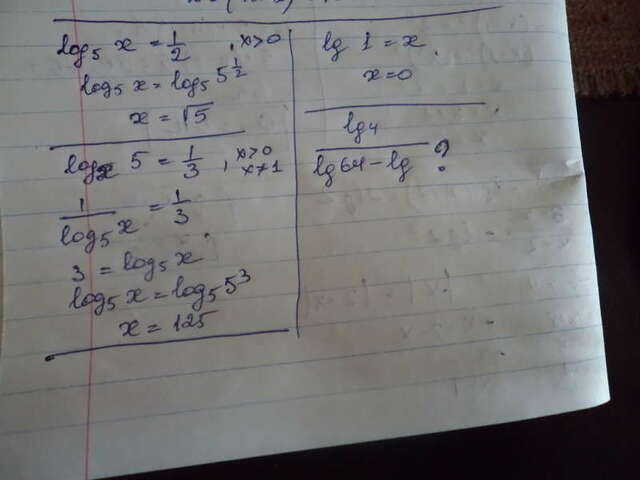 log₅ x = 1/2 , x>0
log₅ x = log₅ 5^(1/2)
x = √5
logₓ 5 = 1/3 , x>0 x≠1
1/log₅ x = 1/3
3 = log₅ x
log₅ x = log₅ 5³
x = 125
lg 1 = x
x = 0
lg 4 / lg 64 - lg ?